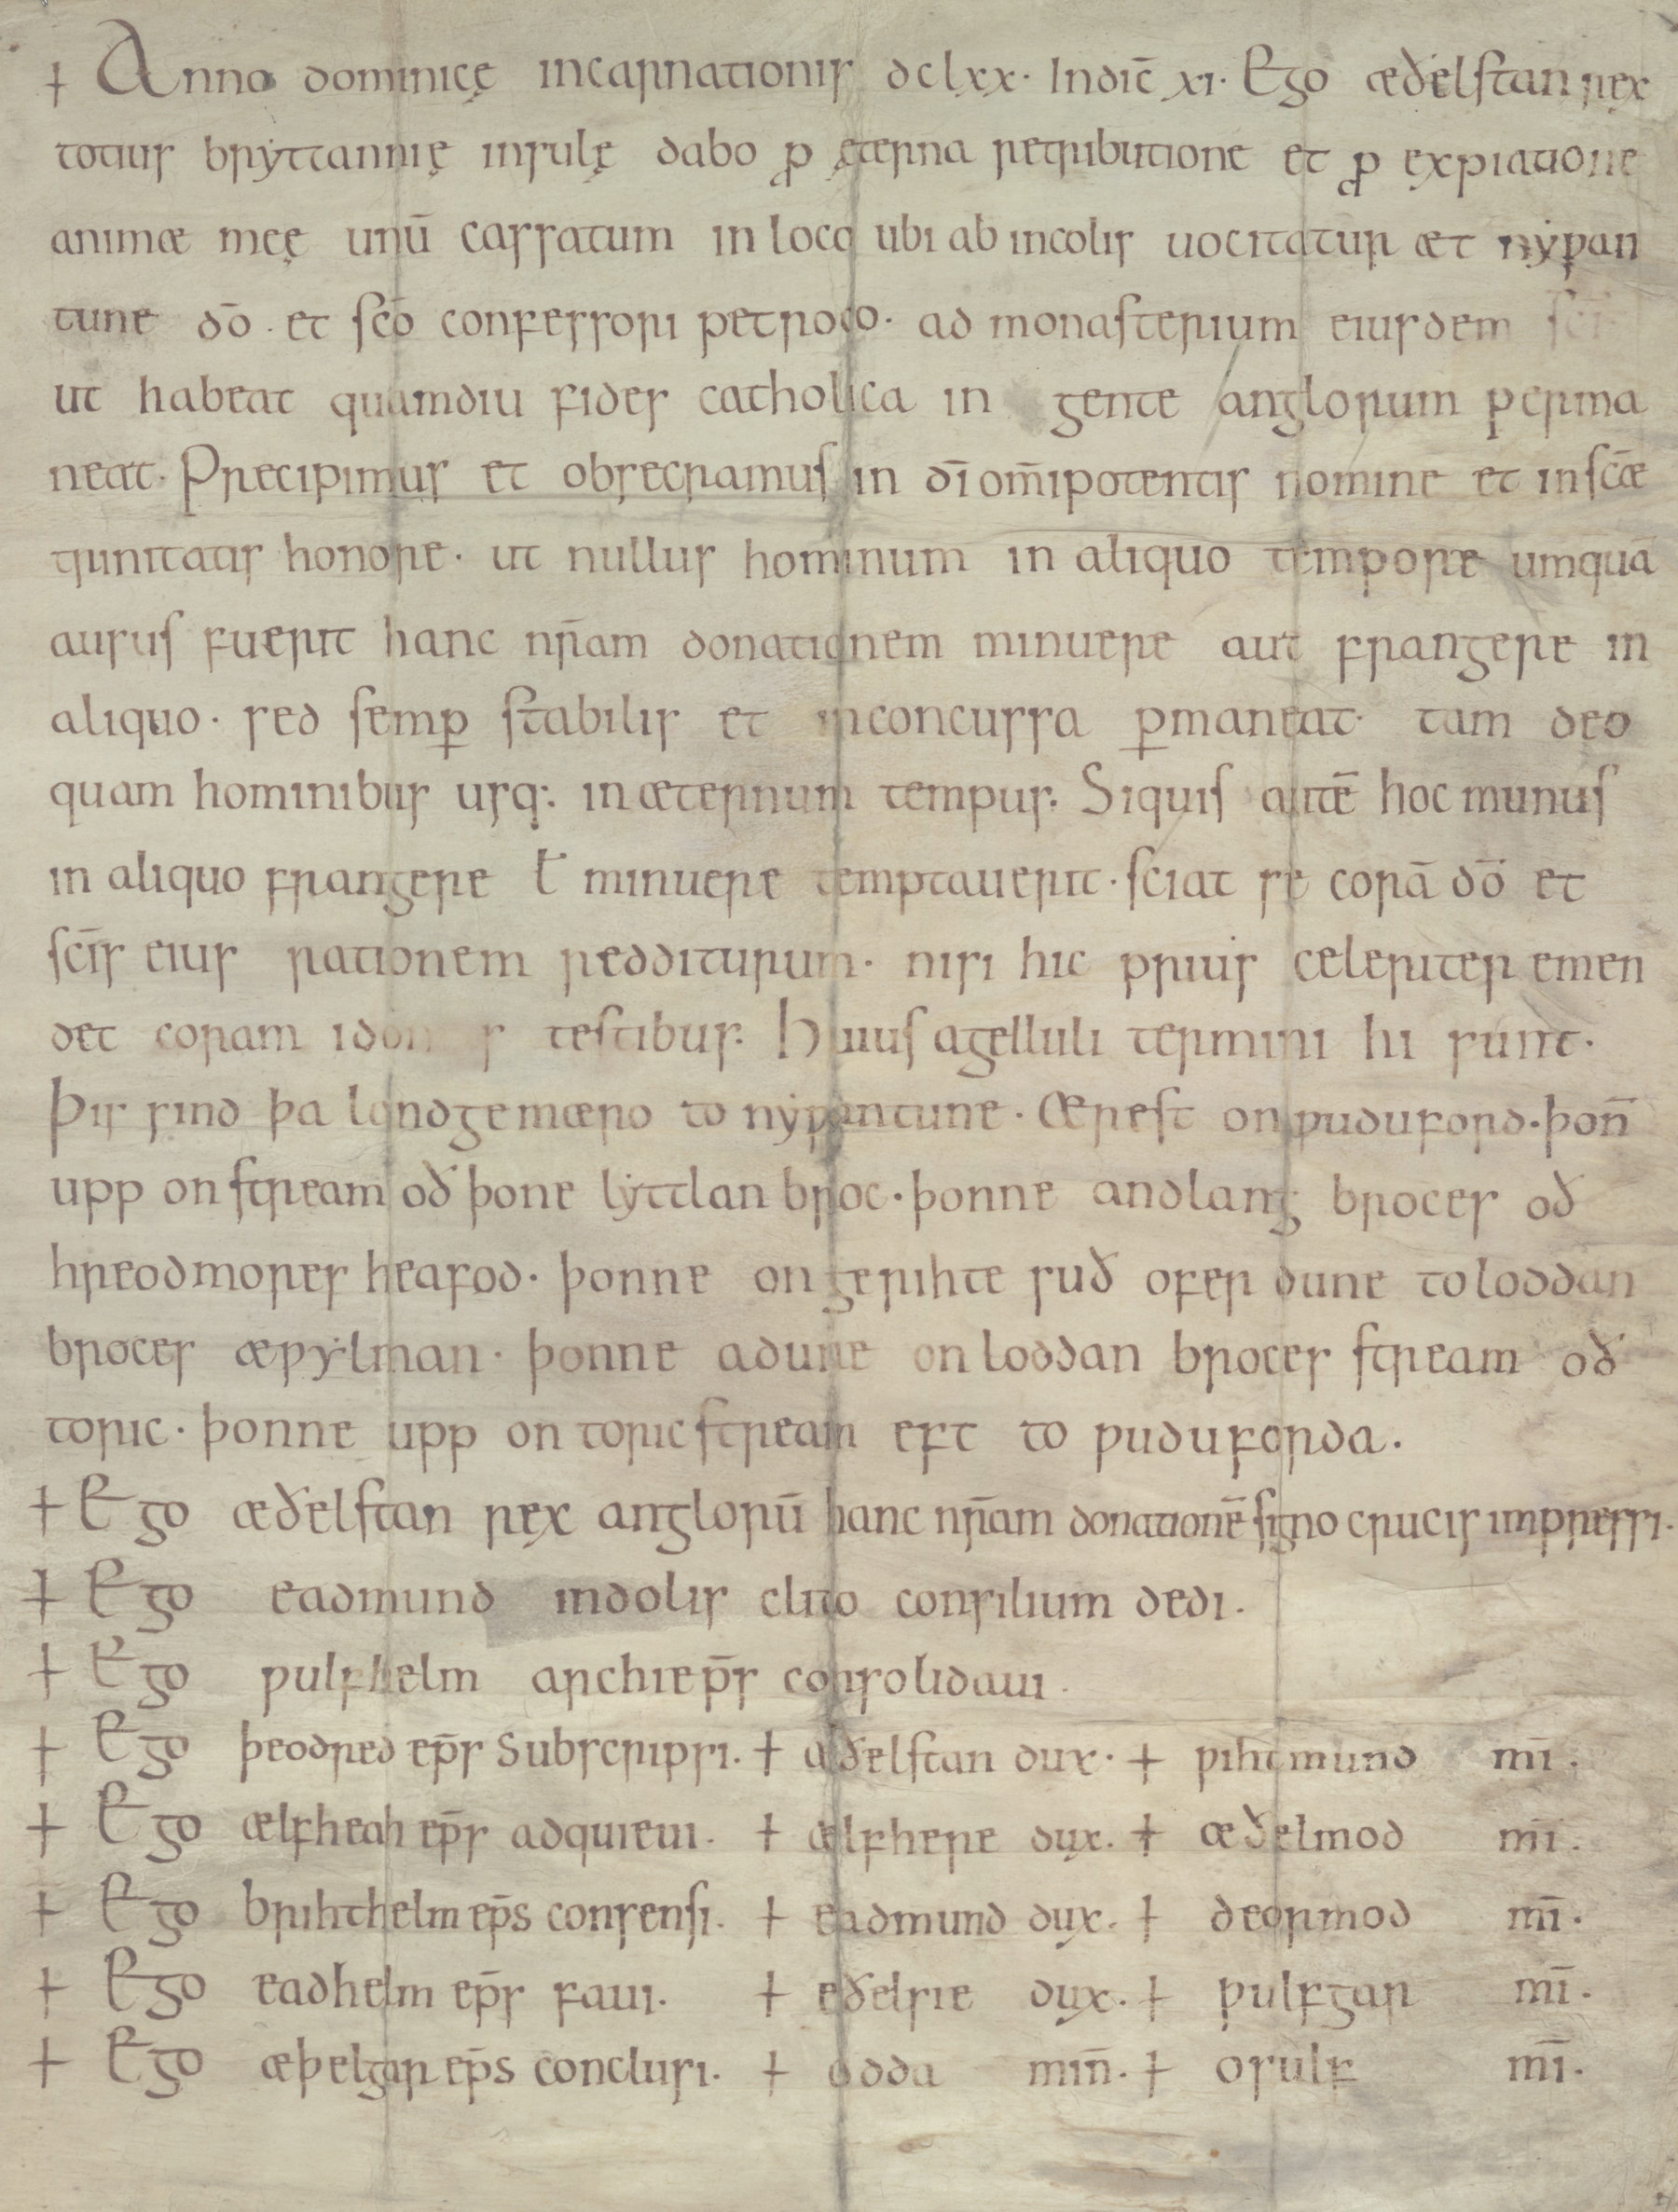 + Anno dominicę incarnationis dclxx. Indic̄ xi. Ego æðelstan rex
totius bryttannię insulę dabo ꝓ ęterna retributione et ꝓ expiatione
animæ meę unū cassatum in loco ubi ab incolis uocitatur æt nẏƿan
tune dō. et sc̄o confessori petroco. ad monasterium eiusdem sc̄i
ut habeat quamdiu fides catholica in gente anglorum perma
neat. Precipimus et obsecramus in dī om̄ipotentis nomine et in sc̄æ
trinitatis honore. ut nullus hominum in aliquo tempore umquā
ausus fuerit hanc nr̄am donationem minuere aut frangere in
aliquo. sed semꝑ stabilis et inconcussa ꝑmaneat. tam deo
quam hominibus usq: in æternum tempus. Siquis autē hoc munus
in aliquo frangere ł minuere temptauerit. sciat se corā dō et
sc̄is eius rationem redditurum. nisi hic prius celeriter emen
det coram testibus. Huius agelluli termini hi sunt.
Þis sind þa londgemæro to nẏƿantune. Ærest on ƿuduford. þon̄
upp on stream oð þone lẏttlan broc. þonne andlang broces oð
hreodmores heafod. þonne on gerihte suð ofer dune to loddan
broces æƿẏlman. þonne adune on loddan broces stream oð
toric. þonne upp on toric stream eft to ƿuduforda.
+ Ego æðelstan rex anglorū hanc nr̄am donationē signo crucis impressi.
+ Ego eadmund indolis clito consilium dedi.
+ Ego ƿulfhelm archiep̄s consolidaui.
+ Ego þeodred ep̄s Subscripsi. + æðelstan dux. + ƿihtmund mī.
+ Ego ælfheah ep̄s adquieui. + ælfhere dux. + æðelmod mī.
+ Ego brihthelm ep̄s consensi. + eadmund dux. + deormod mī.
+ Ego eadhelm ep̄s faui. + eðelsie dux. + ƿulfgar mī.
+ Ego æþelgar ep̄s conclusi. + odda min̄. + osulf mī.